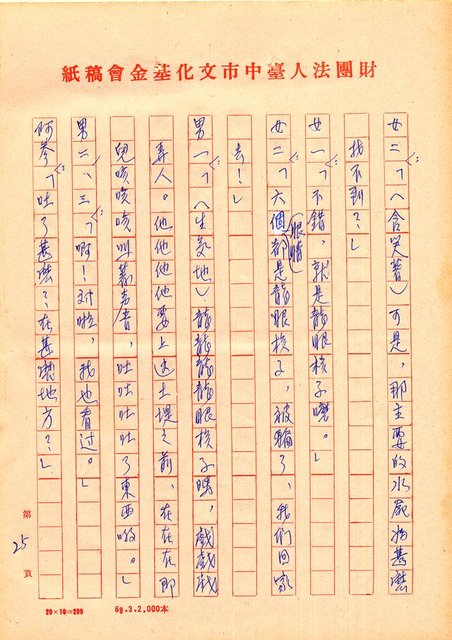 財團法人臺中市文化基金會稿紙
女二：「（含笑著）可是，那主要的水鬼為甚麼
找不到？」
女一：「不錯，就是龍眼核子嚜。」
女二：「六個（眼睛）都是龍眼核子，被騙了，我們回家
去！」
男一：「（生氣地）龍龍龍龍眼核子嗎，戲戲戲
弄人。他他他他要上這土堤之前，在在在那
兒咳咳咳咳叫著，吐吐吐吐了東西啲。」
男二、三：「啊！對啦，我也看過。」
阿岑：「吐了甚麼？在甚麼地方？」
第25頁
20×10=200
68.3.2,000本